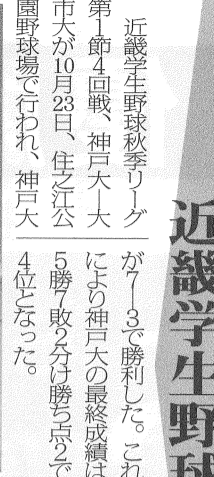 近畿学生野球
近畿学生野球秋季リーグ
第1節4回戦、神戸大―大
市大が10月23日、住之江公
園野球場で行われ、神戸大
が7―3で勝利した。これ
により神戸大の最終成績は
5勝7敗2分け勝ち点2で
4位となった。